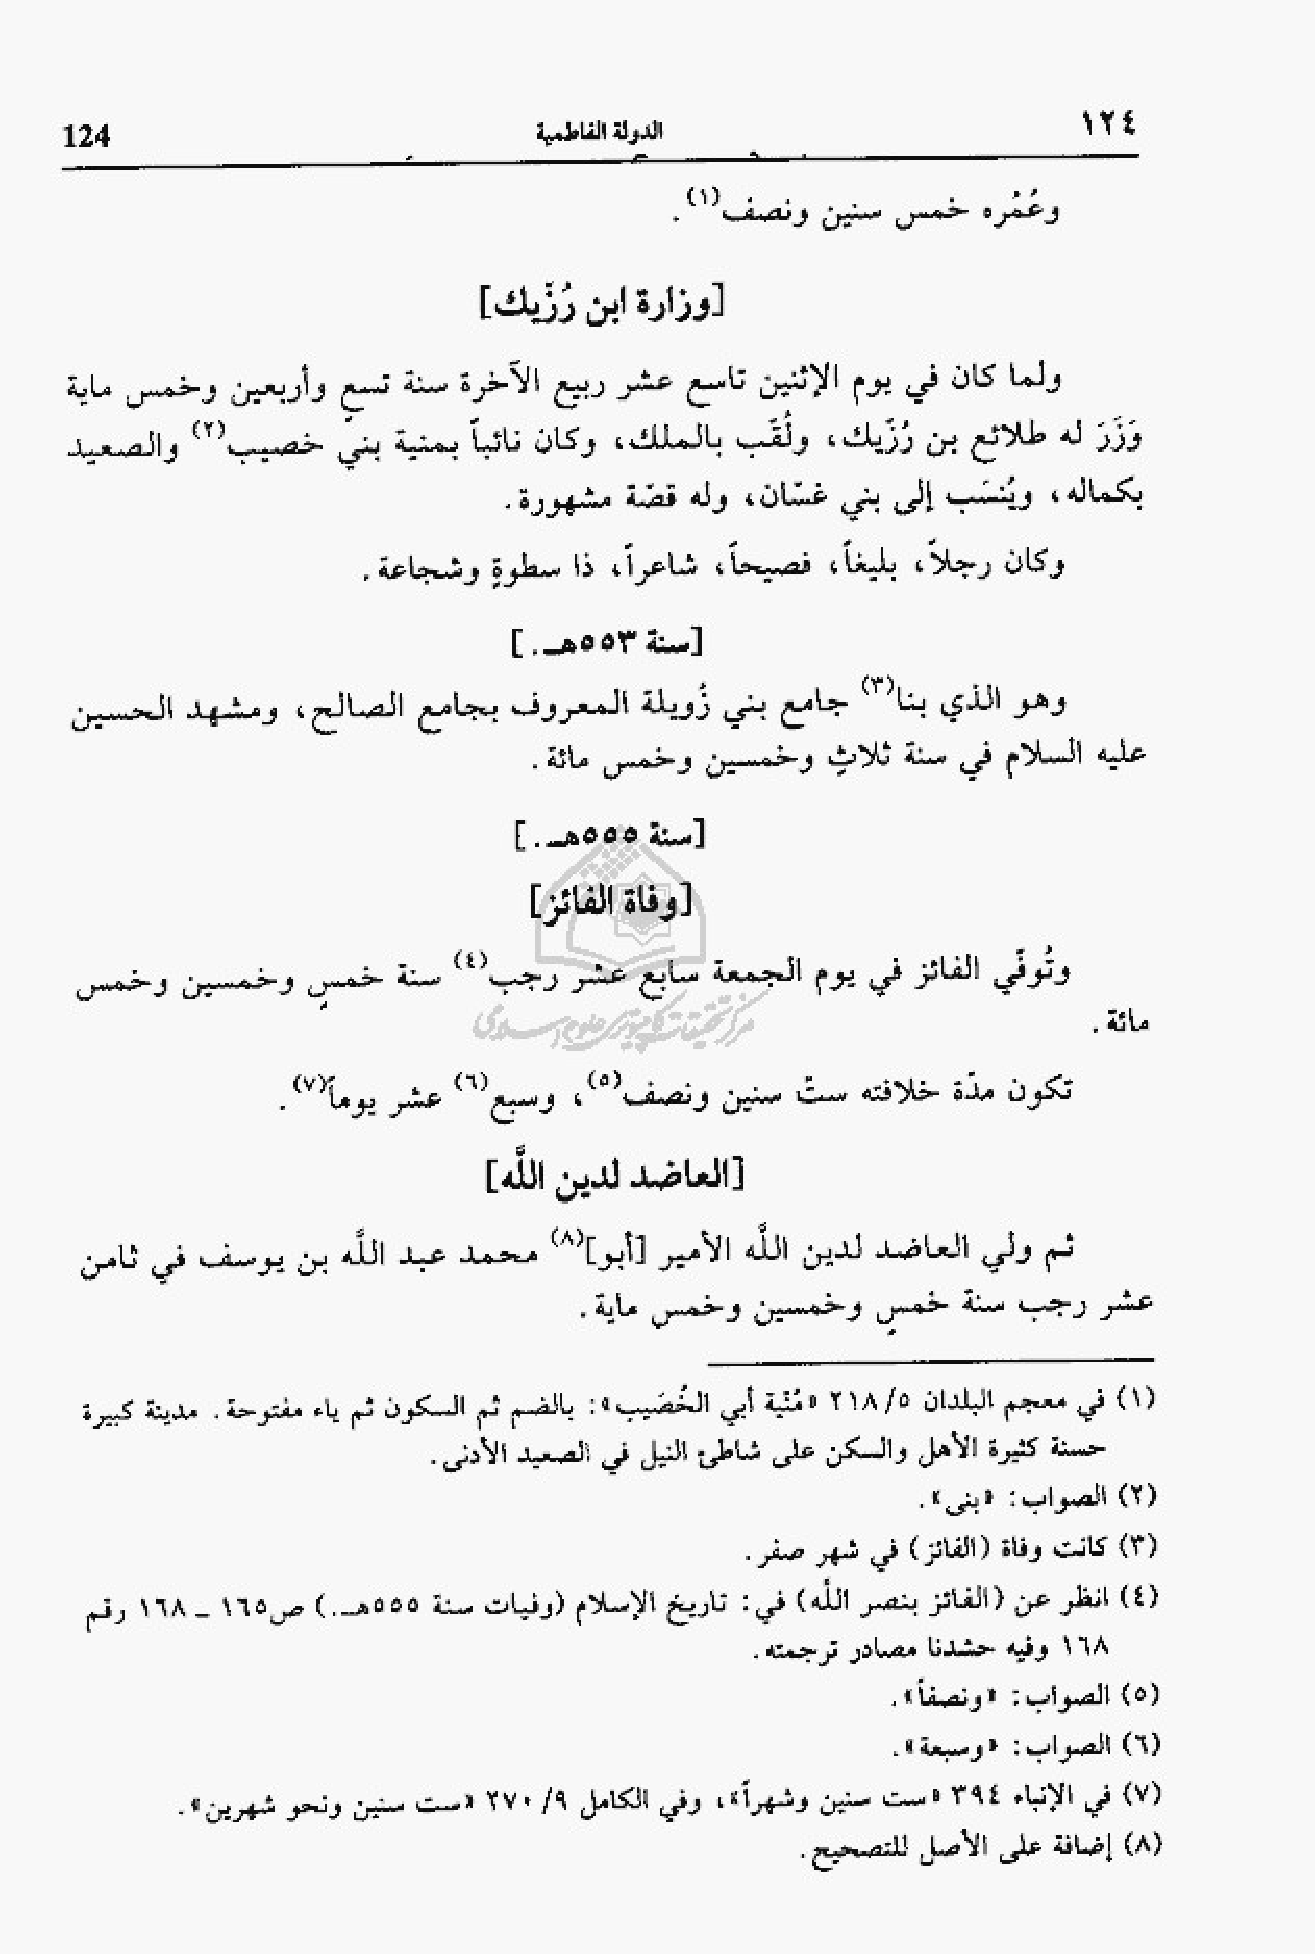 ١٢٤ الدولة الفاطمية 124
وعُمْره خمس سنين ونصف(١).
[وزارة ابن رُزِّيك]
ولما كان في يوم الإثنين تاسع عشر ربيع الآخرة سنة تسعٍ وأربعين وخمس ماية
وَزَرَ له طلائع بن رُزِّيك، ولُقّب بالملك، وكان نائباً بمنية بني خصيب(٢) والصعيد
بكماله، ويُنسَب إلى بني غسّان، وله قصّة مشهورة.
وكان رجلاً، بليغاً، فصيحاً، شاعراً، ذا سطوةٍ وشجاعة.
[سنة ٥٥٣هـ.]
وهو الذي بنا(٣) جامع بني زُويلة المعروف بجامع الصالح، ومشهد الحسين
عليه السلام في سنة ثلاثٍ وخمسين وخمس مائة.
[سنة ٥٥٥هـ.]
[وفاة الفائز]
وتُوفّي الفائز في يوم الجمعة سابع عشر رجب(٤) سنة خمسٍ وخمسين وخمس
مائة.
مركز تحقيقات كامپيوتری علوم اسلامی
تكون مدّة خلافته ستّ سنين ونصف(٥)، وسبع(٦) عشر يوماً(٧).
[العاضد لدين اللَّه]
ثم ولي العاضد لدين اللَّه الأمير [أبو](٨) محمد عبد اللَّه بن يوسف في ثامن
عشر رجب سنة خمسٍ وخمسين وخمس ماية.
(١) في معجم البلدان ٢١٨/٥ «مُنْية أبي الخُصَيب»: بالضم ثم السكون ثم ياء مفتوحة. مدينة كبيرة
حسنة كثيرة الأهل والسكن على شاطئ النيل في الصعيد الأدنى.
(٢) الصواب: «بنى».
(٣) كانت وفاة (الفائز) في شهر صفر.
(٤) انظر عن (الفائز بنصر اللَّه) في: تاريخ الإسلام (وفيات سنة ٥٥٥هـ.) ص١٦٥ ـ ١٦٨ رقم
١٦٨ وفيه حشدنا مصادر ترجمته.
(٥) الصواب: «ونصفاً».
(٦) الصواب: «وسبعة».
(٧) في الإنباء ٣٩٤ «ست سنين وشهراً»، وفي الكامل ٩/ ٢٧٠ «ست سنين ونحو شهرين».
(٨) إضافة على الأصل للتصحيح.